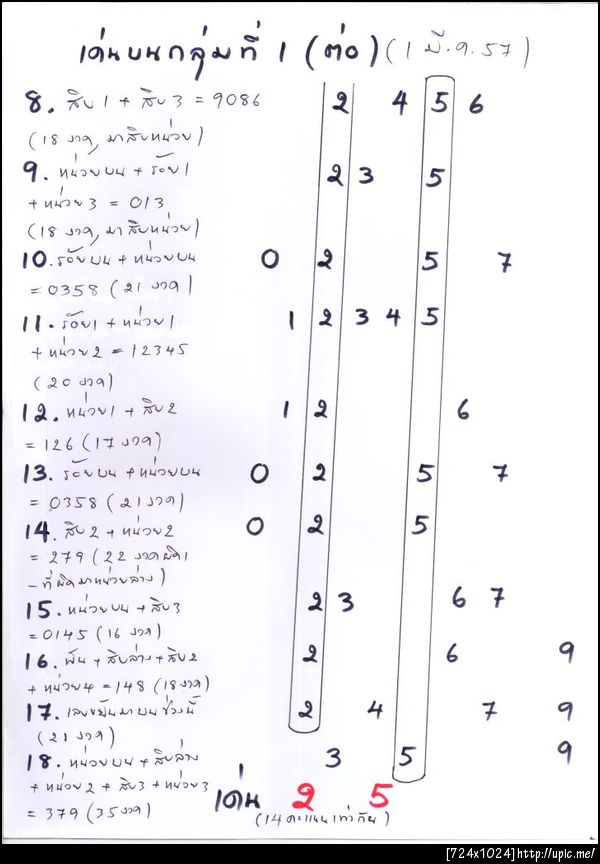 เด่นบนกลุ่มที่ 1 (ต่อ) (1 มี.ค.57)
8. สิบ1 + สิบ3 = 9086 2 4 5 6
(18 งวด, มาสิบหน่วย)
9. หน่วยบน + ร้อย1 2 3 5
+ หน่วย3 = 013
(18 งวด, มาสิบหน่วย)
10. ร้อยบน + หน่วยบน 0 2 5 7
= 0358 (21 งวด)
11. ร้อย1 + หน่วย1 1 2 3 4 5
+ หน่วย2 = 12345
(20 งวด)
12. หน่วย1 + สิบ2 1 2 6
= 126 (17 งวด)
13. ร้อยบน + หน่วยบน 0 2 5 7
= 0358 (21 งวด)
14. สิบ2 + หน่วย2 0 2 5
= 279 (22 งวดผิด1
- ที่ผิดมาหน่วยล่าง)
15. หน่วยบน + สิบ3 2 3 6 7
= 0145 (16 งวด)
16. พัน + สิบล่าง + สิบ2 2 6 9
+ หน่วย4 = 148 (18 งวด)
17. เลขขยันมาบนช่วงนี้ 2 4 7 9
(21 งวด)
18. หน่วยบน + สิบล่าง 3 5 9
+ หน่วย2 + สิบ3 + หน่วย3
= 379 (35 งวด)
เด่น 2 5
(14 คะแนนเท่ากัน)
[724x1024]http://upic.me/